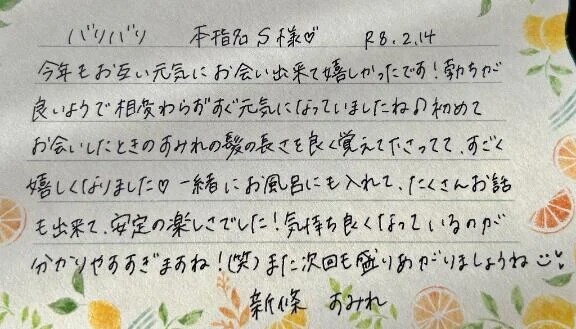 バリバリ 本指名 S様♡ R8.2.14
今年もお互い元気にお会い出来て嬉しかったです!勃ちが
良いようで相変わらずすぐ元気になっていましたね♪初めて
お会いしたときのすみれの髪の長さを良く覚えて下さってて、すごく
嬉しくなりました♡一緒にお風呂にも入れて、たくさんお話
も出来て、安定の楽しさでした!気持ち良くなっているのが
分かりやすすぎますね!(笑)また次回も盛りあがりましょうね
新條 すみれ